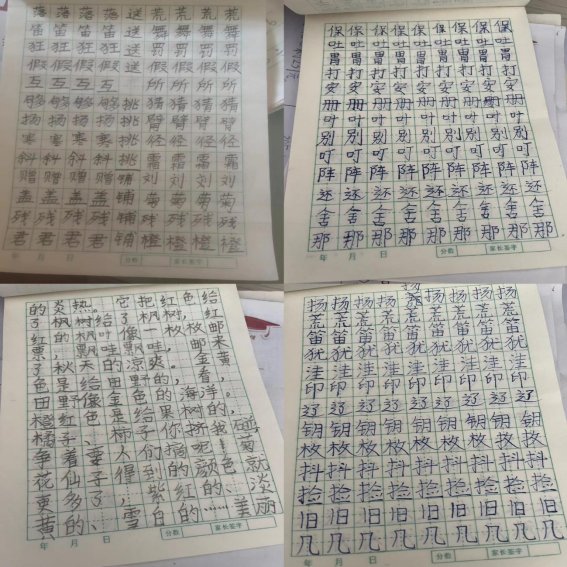 落 落 落 落 送 荒 荒 荒 荒
笛 笛 笛 笛 送 舞 舞 舞 舞
狂 狂 狂 狂 送 罚 罚 罚 罚
假 假 假 假 送 假 假 假 假
互 互 互 互 所 所 所 所
够 够 够 够 挑 猎 猎 猎 猎
扬 扬 扬 扬 挑 臂 臂 臂 臂
寒 寒 寒 寒 挑 径 径 径 径
斜 斜 斜 斜 挑 霜 霜 霜 霜
赠 赠 赠 赠 铺 刘 刘 刘 刘
盖 盖 盖 盖 铺 菊 菊 菊 菊
残 残 残 残 铺 残 残 残 残
君 君 君 君 铺 橙 橙 橙 橙
年 月 日 分数 家长签字
保 保 保 保 保 保 保 保
吐 吐 吐 吐 吐 吐 吐 吐
胃 胃 胃 胃 胃 胃 胃 胃
打 打 打 打 打 打 打 打
安 安 安 安 安 安 安 安
册 册 册 册 册 册 册 册
叶 叶 叶 叶 叶 叶 叶 叶
别 别 别 别 别 别 别 别
叮 叮 叮 叮 叮 叮 叮 叮
阵 阵 阵 阵 阵 阵 阵 阵
还 还 还 还 还 还 还 还
舍 舍 舍 舍 舍 舍 舍 舍
那 那 那 那 那 那 那 那
年 月 日 分数 家长签字
的炎热。它把红色给
了枫树给了枫树,
红的枫叶像一枚枚邮
票,飘哇飘哇,邮来
了秋天的凉爽。金黄
色是给田野的,看,
田野像金色的海洋。
橙红色是给果树的,
橘子、柿子你挤我碰
争着要人们摘呢!菊
花仙子得到的颜色就
更多了,紫红的、淡
黄的、雪白的……美丽
年 月 日 分数 家长签字
扬 扬 扬 扬 扬 扬 扬 扬
荒 荒 荒 荒 荒 荒 荒 荒
笛 笛 笛 笛 笛 笛 笛 笛
犹 犹 犹 犹 犹 犹 犹 犹
洼 洼 洼 洼 洼 洼 洼 洼
印 印 印 印 印 印 印 印
辽 辽 辽 辽 辽 辽 辽 辽
钥 钥 钥 钥 钥 钥 钥 钥
枚 枚 枚 枚 枚 枚 枚 枚
抖 抖 抖 抖 抖 抖 抖 抖
捡 捡 捡 捡 捡 捡 捡 捡
旧 旧 旧 旧 旧 旧 旧 旧
几 几 几 几 几 几 几 几
年 月 日 分数 家长签字